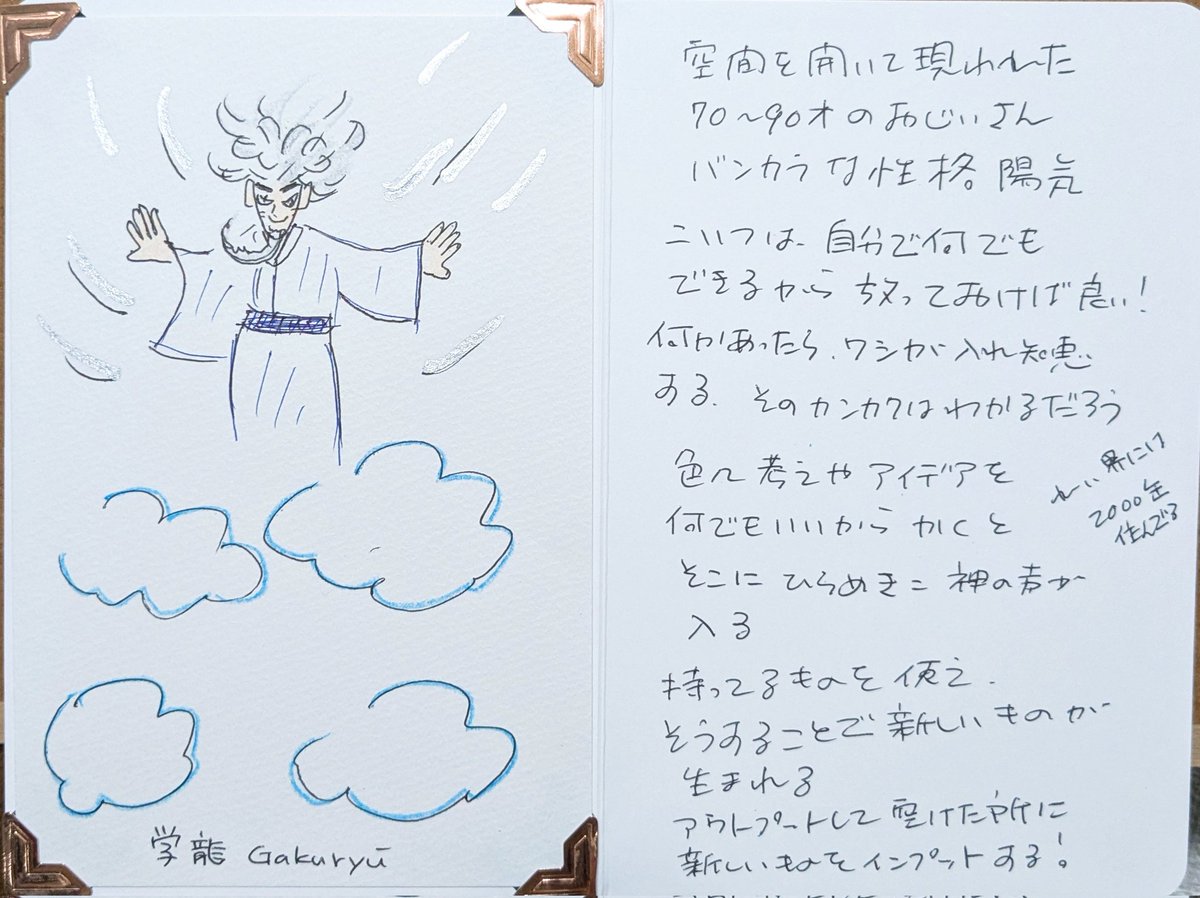 学龍 Gakuryū
空間を開いて現われた
70〜90才のおじいさん
バンカラな性格 陽気
こいつは、自分で何でも
できるから 放っておけば良い!
何かあったら、ワシが入れ知恵
する。そのカンカクはわかるだろう
色々考えやアイデアを
何でもいいから かくと
そこに ひらめき= 神の声が
入る
れい界に
2000年
住んでる
持ってるものを使え.
そうすることで新しいものが
生まれる
アウトプットして空けた所に
新しいものをインプットする!